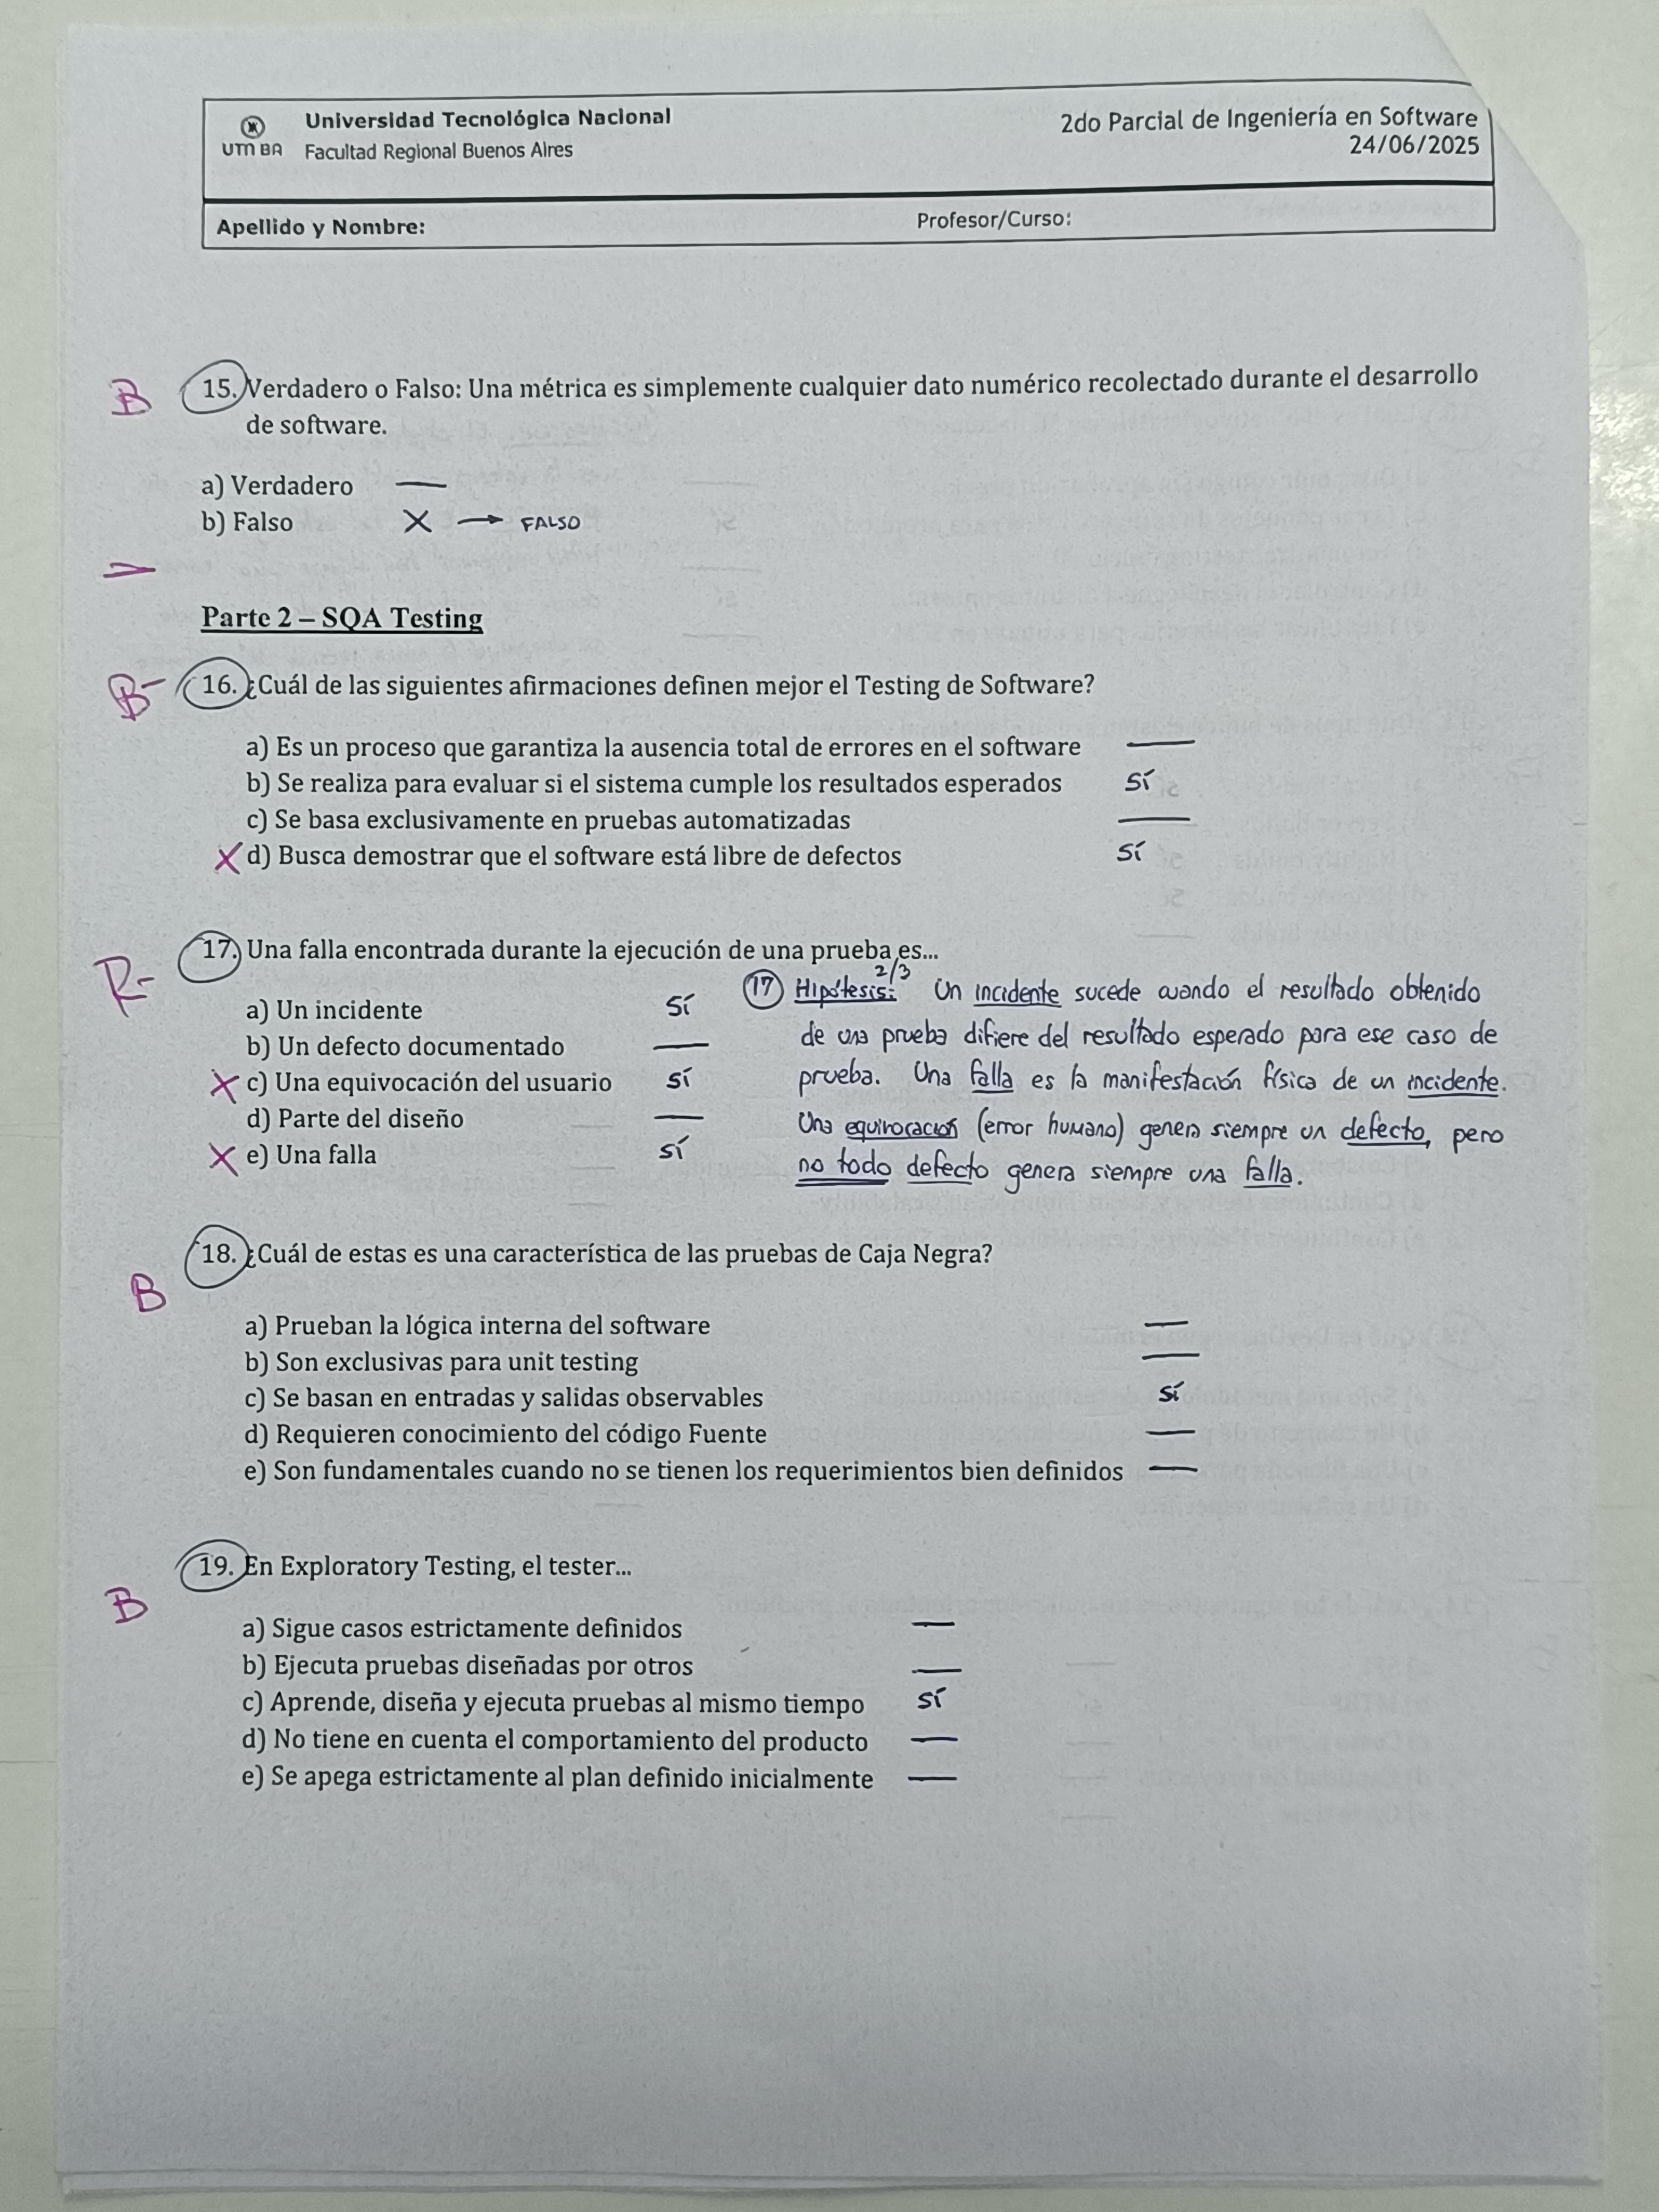 Universidad Tecnológica Nacional
UTN BA Facultad Regional Buenos Aires
2do Parcial de Ingeniería en Software
24/06/2025
Apellido y Nombre: Profesor/Curso:
B 15. Verdadero o Falso: Una métrica es simplemente cualquier dato numérico recolectado durante el desarrollo
de software.
a) Verdadero —
b) Falso X → FALSO
Parte 2 – SQA Testing
B- 16. ¿Cuál de las siguientes afirmaciones definen mejor el Testing de Software?
a) Es un proceso que garantiza la ausencia total de errores en el software —
b) Se realiza para evaluar si el sistema cumple los resultados esperados SÍ
c) Se basa exclusivamente en pruebas automatizadas —
X d) Busca demostrar que el software está libre de defectos SÍ
R- 17. Una falla encontrada durante la ejecución de una prueba es...
a) Un incidente SÍ
b) Un defecto documentado —
X c) Una equivocación del usuario SÍ
d) Parte del diseño —
X e) Una falla SÍ
2/3
17 Hipótesis: Un incidente sucede cuando el resultado obtenido
de una prueba difiere del resultado esperado para ese caso de
prueba. Una falla es la manifestación física de un incidente.
Una equivocación (error humano) genera siempre un defecto, pero
no todo defecto genera siempre una falla.
B 18. ¿Cuál de estas es una característica de las pruebas de Caja Negra?
a) Prueban la lógica interna del software —
b) Son exclusivas para unit testing —
c) Se basan en entradas y salidas observables SÍ
d) Requieren conocimiento del código Fuente —
e) Son fundamentales cuando no se tienen los requerimientos bien definidos —
B 19. En Exploratory Testing, el tester...
a) Sigue casos estrictamente definidos —
b) Ejecuta pruebas diseñadas por otros —
c) Aprende, diseña y ejecuta pruebas al mismo tiempo SÍ
d) No tiene en cuenta el comportamiento del producto —
e) Se apega estrictamente al plan definido inicialmente —